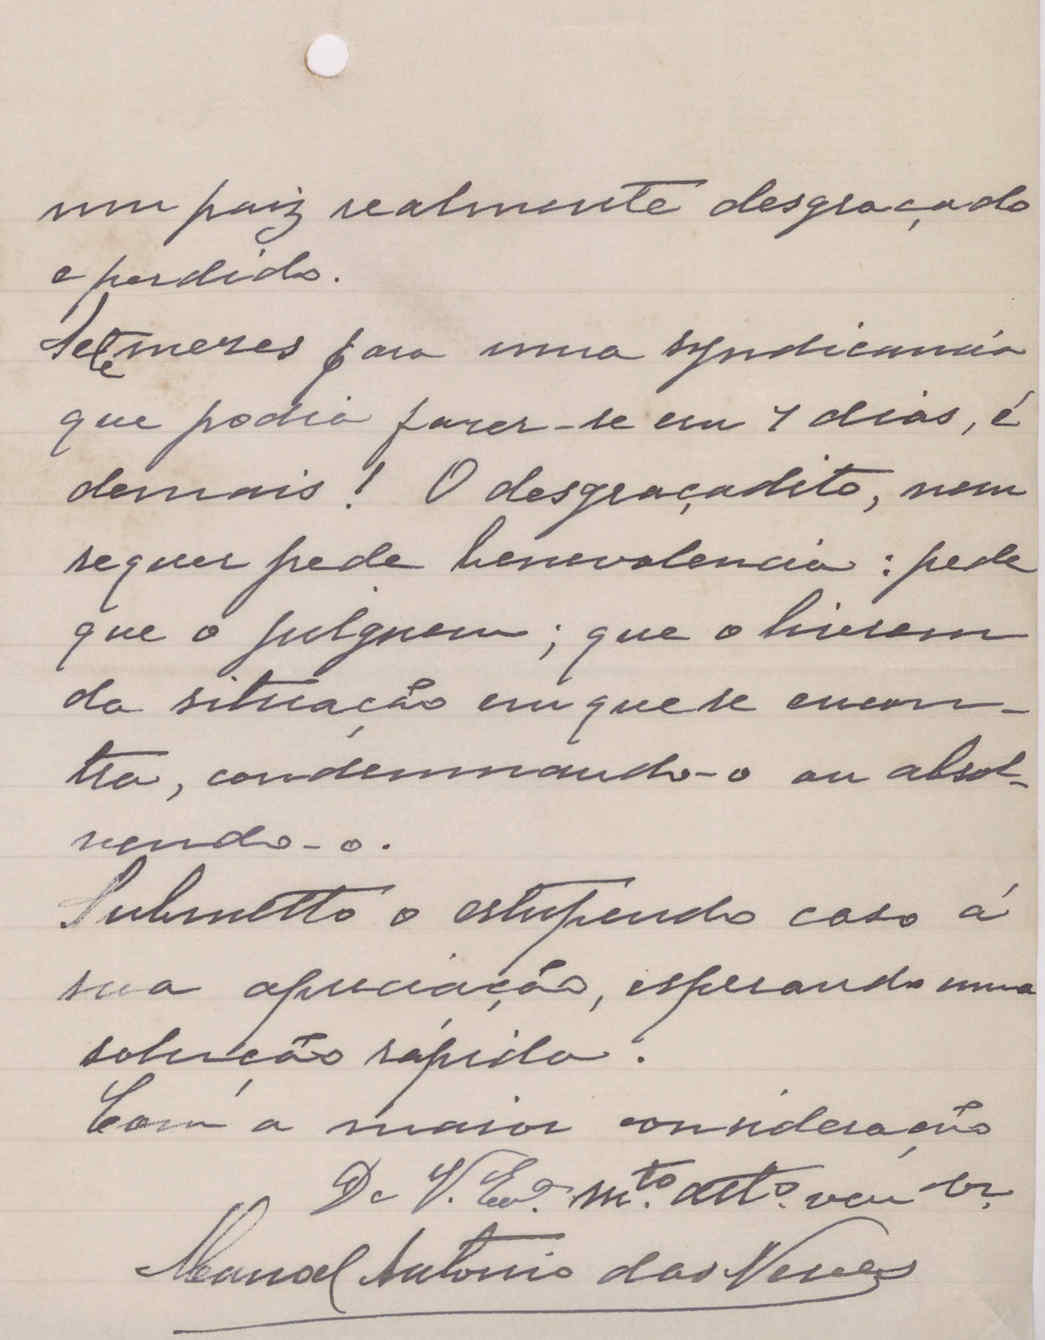 um paiz realmente desgraçado
e perdido.
Sete mezes para uma syndicancia
que podia fazer-se em 7 dias, é
demais! O desgraçadito, nem
sequer pede benevolencia: pede
que o julguem; que o livrem
da situação em que se encon-
tra, condemnando-o ou absol-
vendo-o.
Submetto o estupendo caso á
sua apreciação, esperando uma
solução rápida.
Com a maior consideração
De V. Exª. mto. attº. ven.or.
Manoel Antonio das Neves